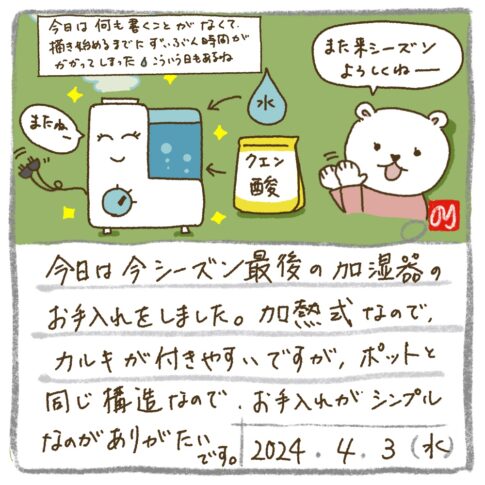 今日は何も書くことがなくて、
描き始めるまでにずいぶん時間が
かかってしまった💧こういう日もあるね
また来シーズン
よろしくねー
またねー
水
クエン
酸
今日は今シーズン最後の加湿器の
お手入れをしました。加熱式なので、
カルキが付きやすいですが、ポットと
同じ構造なので、お手入れがシンプル
なのがありがたいです。
2024.4.3(水)